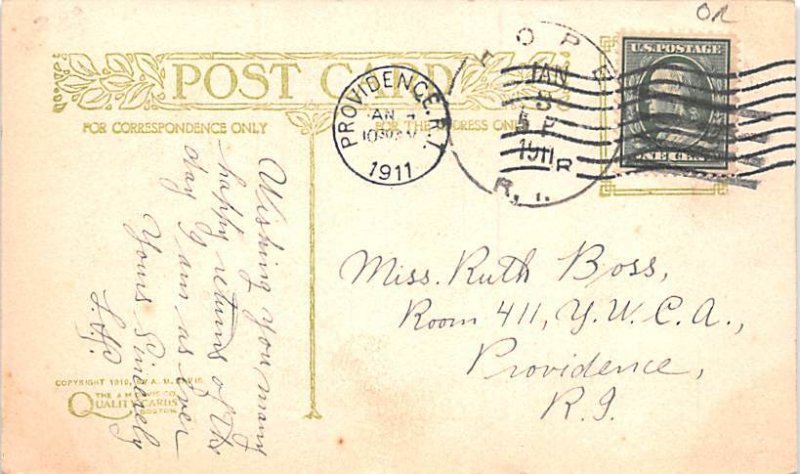 OR
POST CARD
FOR CORRESPONDENCE ONLY
FOR THE ADDRESS ONLY
PROVIDENCE, R.I.
JAN 4
1911
HOPE
JAN
3
P
1911
R
R.I.
U.S. POSTAGE
ONE CENT
Wishing you many
happy returns of the
day I am as ever
Yours Sincerely
Miss. Ruth Boss,
Room 411, Y.W.C.A.,
Providence,
R.I.
COPYRIGHT 1910, BY A. M. DAVIS
THE A M DAVIS CO.
QUALITY CARDS
BOSTON